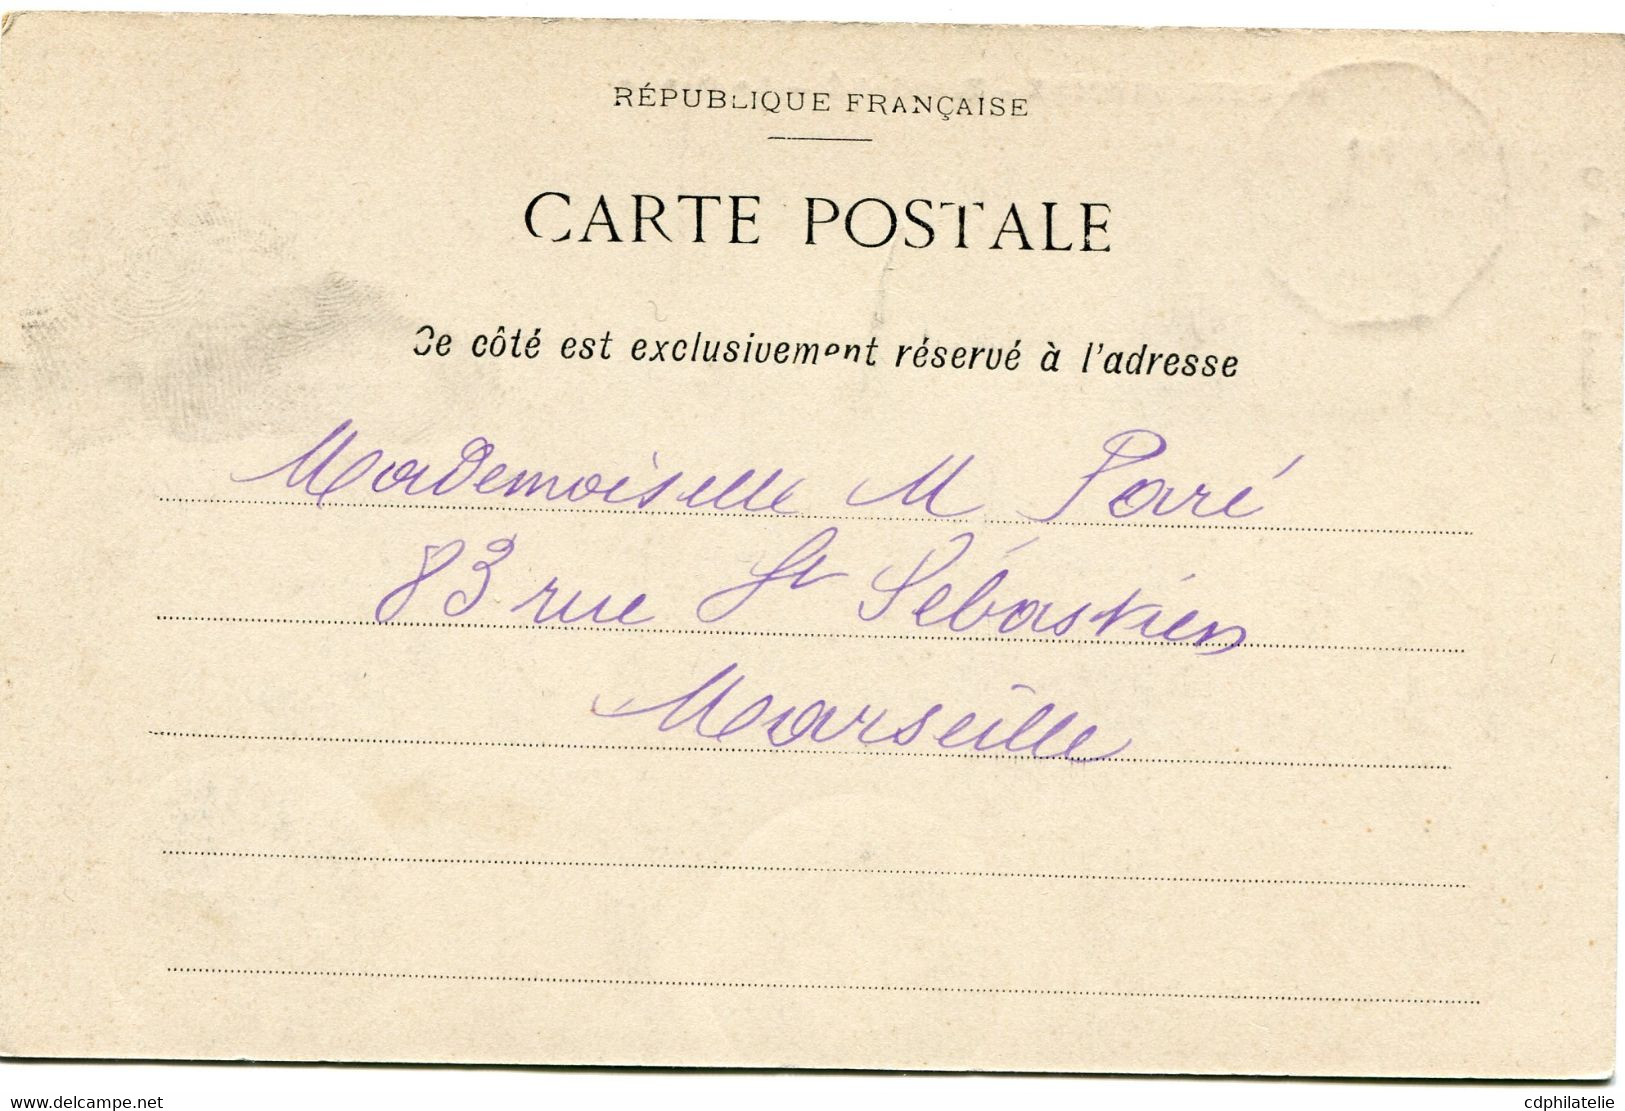 RÉPUBLIQUE FRANÇAISE
CARTE POSTALE
Ce côté est exclusivement réservé à l'adresse
Mademoiselle M Paré
83 rue St Sébastien
Marseille
www.delcampe.net
cdphilatelie